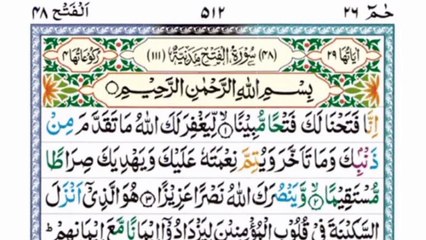 حٰمٓ ٢٦ ٥١٢ اَلْفَتْح ٤٨
اٰیَاتُهَا ٢٩ (٤٨) سُوْرَةُ الْفَتْحِ مَدَنِیَّةٌ (١١١) رُكُوْعَاتُهَا ٤
بِسْمِ اللّٰهِ الرَّحْمٰنِ الرَّحِیْمِ
اِنَّا فَتَحْنَا لَكَ فَتْحًا مُّبِیْنًا ۙ﴿١﴾ لِّیَغْفِرَ لَكَ اللّٰهُ مَا تَقَدَّمَ مِنْ
ذَنْۢبِكَ وَمَا تَاَخَّرَ وَیُتِمَّ نِعْمَتَهٗ عَلَیْكَ وَیَهْدِیَكَ صِرَاطًا
مُّسْتَقِیْمًا ۙ﴿٢﴾ وَّیَنْصُرَكَ اللّٰهُ نَصْرًا عَزِیْزًا ﴿٣﴾ هُوَ الَّذِیْۤ اَنْزَلَ
السَّكِیْنَةَ فِیْ قُلُوْبِ الْمُؤْمِنِیْنَ لِیَزْدَادُوْۤا اِیْمَانًا مَّعَ اِیْمَانِهِمْ ؕ